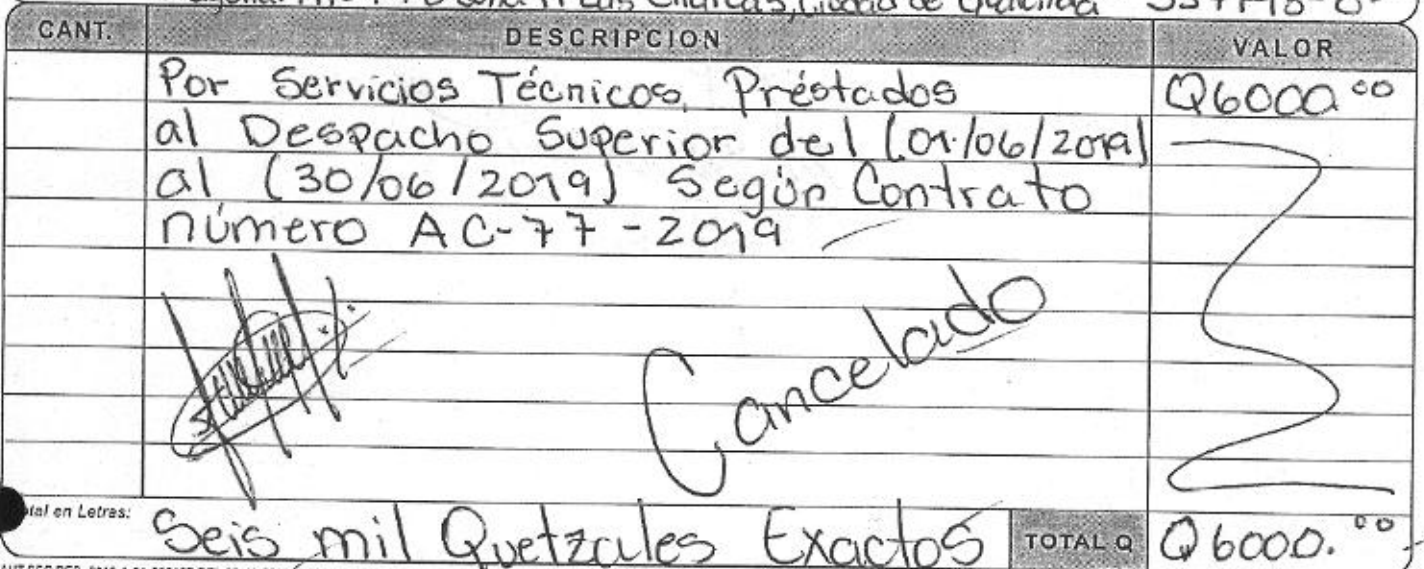 Zona 11 Las Charcas, Ciudad de Guatemala
CANT. DESCRIPCION VALOR
Por Servicios Técnicos, Préstados Q6000.00
al Despacho Superior del (01/06/2019)
al (30/06/2019) Según Contrato
número AC-77-2019
Cancelado
Total en Letras: Seis mil Quetzales Exactos TOTAL Q Q6000.00